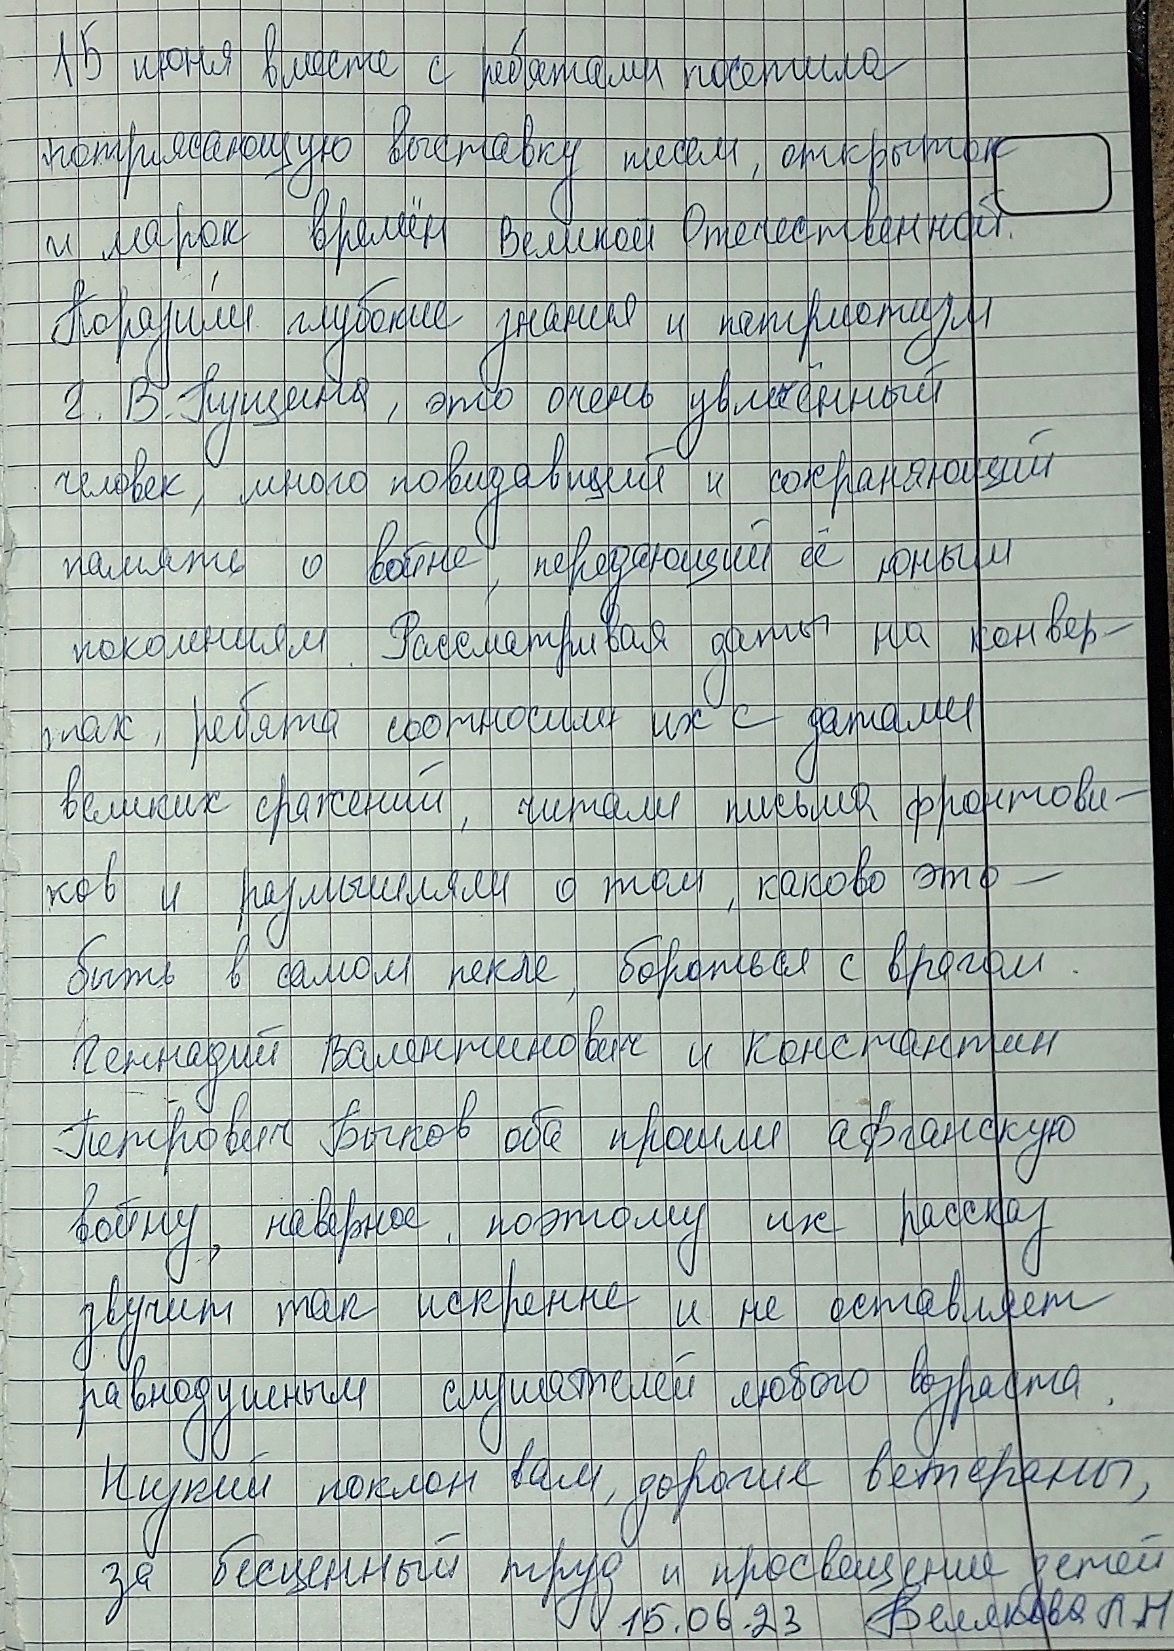 15 июня вместе с ребятами посетила
потрясающую выставку писем, открыток
и марок времён Великой Отечественной.
Поразили глубокие знания и патриотизм
Г. В. Пущина, это очень увлечённый
человек, много повидавщий и сохраняющий
память о войне, передающий её юным
поколениям. Рассматривая даты на конвер-
тах, ребята соотносили их с датами
великих сражений, читали письма фронтови-
ков и размышляли о том, каково это –
быть в самом пекле, бороться с врагом.
Геннадий Валентинович и Константин
Петрович Бычков оба прошли афганскую
войну, наверное, поэтому их рассказ
звучит так искренне и не оставляет
равнодушным слушателей любого возраста.
Низкий поклон вам, дорогие ветераны,
за бесценный труд и просвещение детей
15.06.23 Белякова Л Н